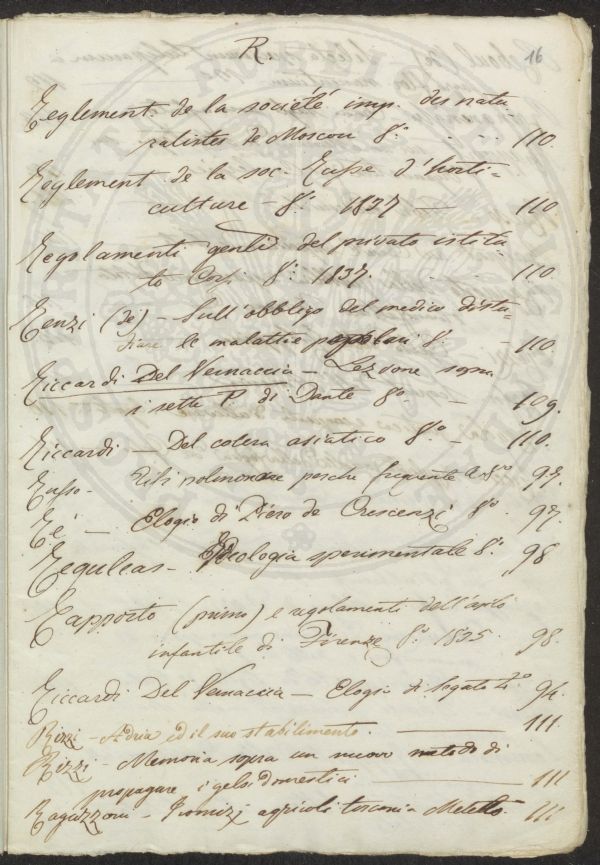 R
16
Reglement de la société imp. des natu
ralistes de Moscou 8.° - - - 110.
Reglement de la soc. d'horti-
culture - 8.° 1837 — 110
Regolamenti del privato istitu
to 8.° 1837. - - 110.
Renzi (de) - Sull'obbligo del medico di stu-
diare le malattie popolari 8.° - 110.
Riccardi Del Vernaccia - Lezione sopra
i sette P di Dante 8.° - 109.
Riccardi - Del colera asiatico 8.° - 110.
Tisi polmonare perchè frequente 8.° 97.
Re — Elogio di Piero de Crescenzi 8.° 97.
Ideologia sperimentale 8.° 98
Rapporto (primo) e regolamenti dell'asilo
infantile di Firenze 8.° 1835 98.
Riccardi Del Vernaccia — Elogio di Segato 4.° 94.
Rizzi - Adria ed il suo stabilimento. — 111.
Rizzi - Memoria sopra un nuovo metodo di
propagare i gelsi domestici — 111
Ragazzoni - agricoli 111